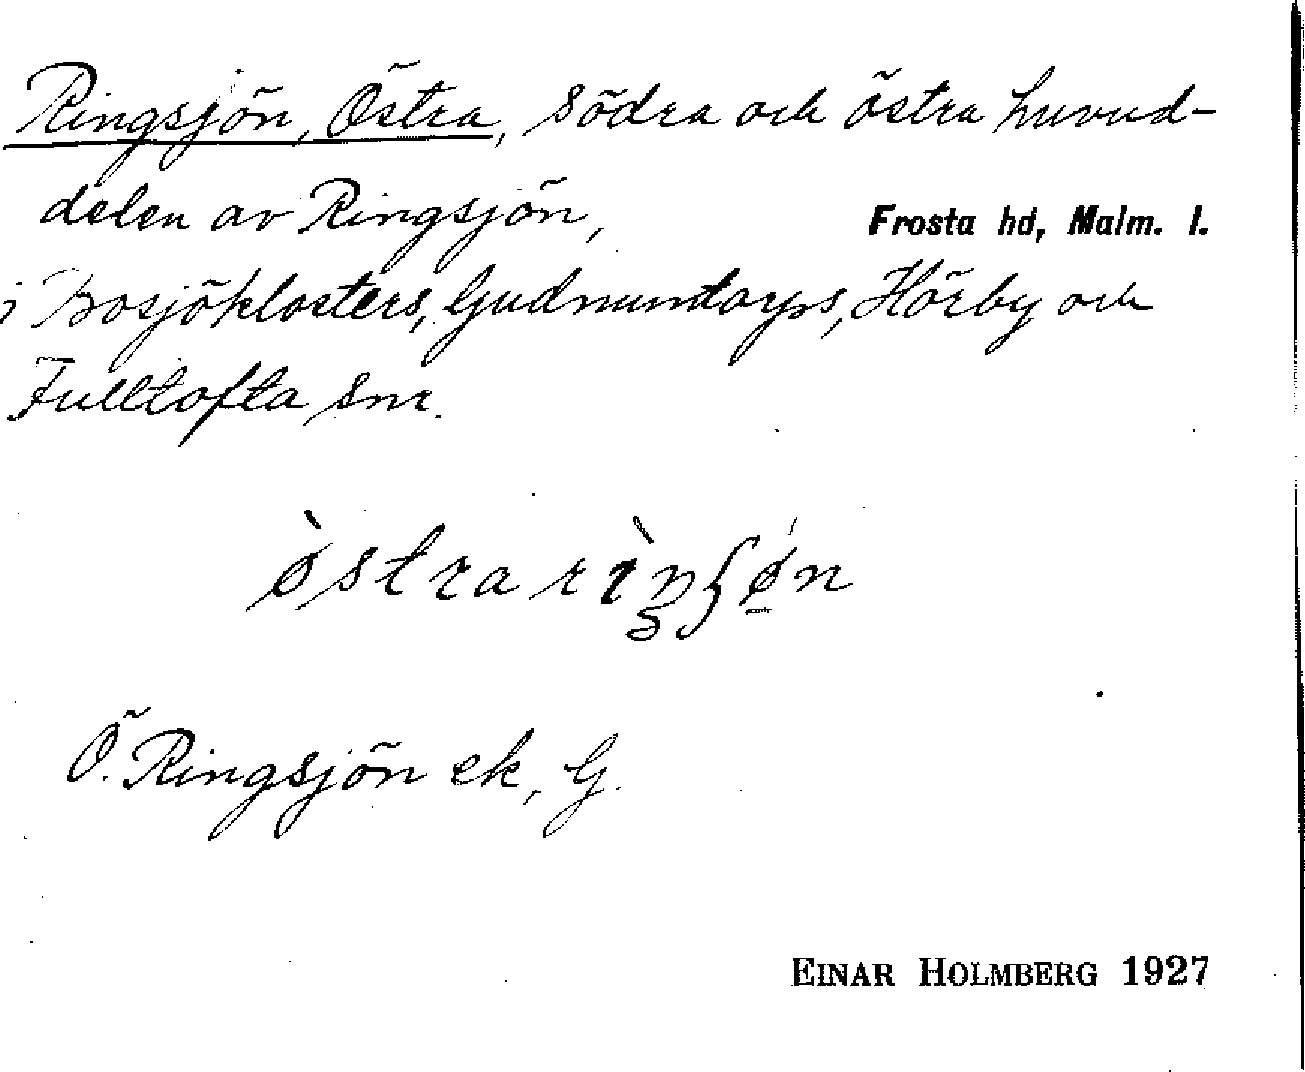 Ringsjön, Östra, södra och östra huvud-
delen av Ringsjön,
Frosta hd, Malm. l.
i Bosjöklosters, Gudmuntorps, Hörby och
Fulltofta snr.
òstra rìŋʃǿn
Ö. Ringsjön ek, G.
EINAR HOLMBERG 1927